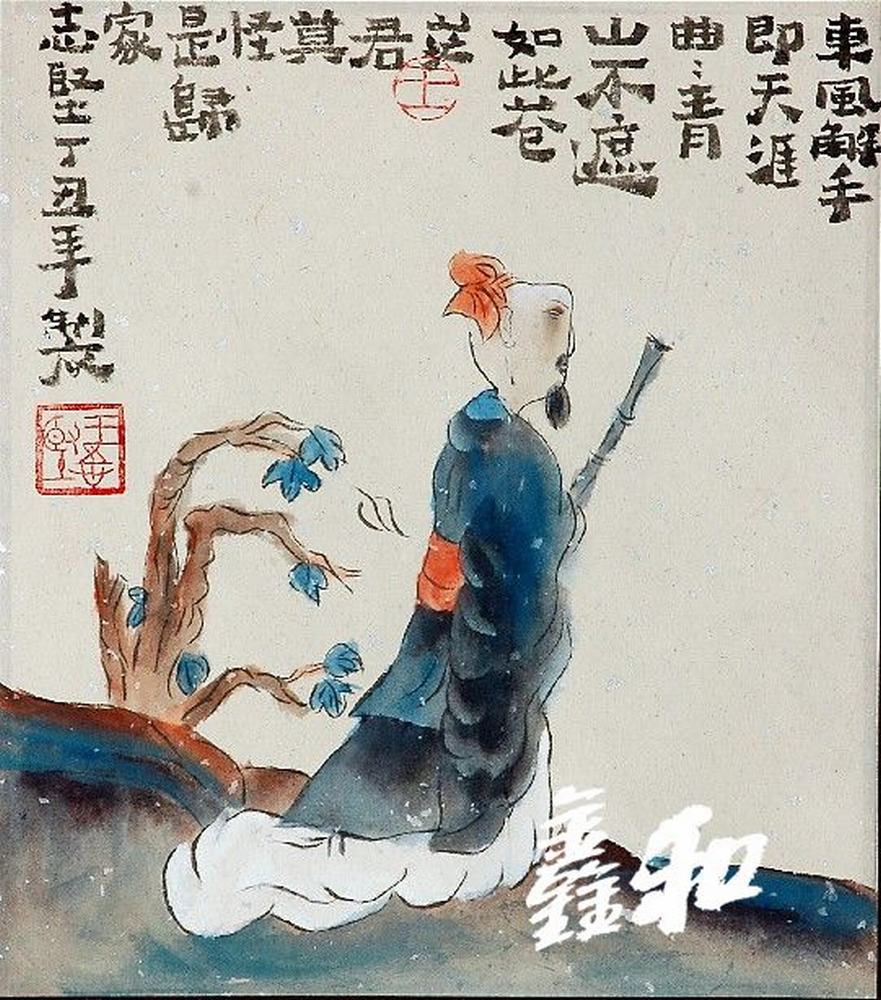 東風解手
即天涯
曲〻青
山不遮
如此苍
茫
君
莫
怪
是歸
家
志堅丁丑手製
鑫和